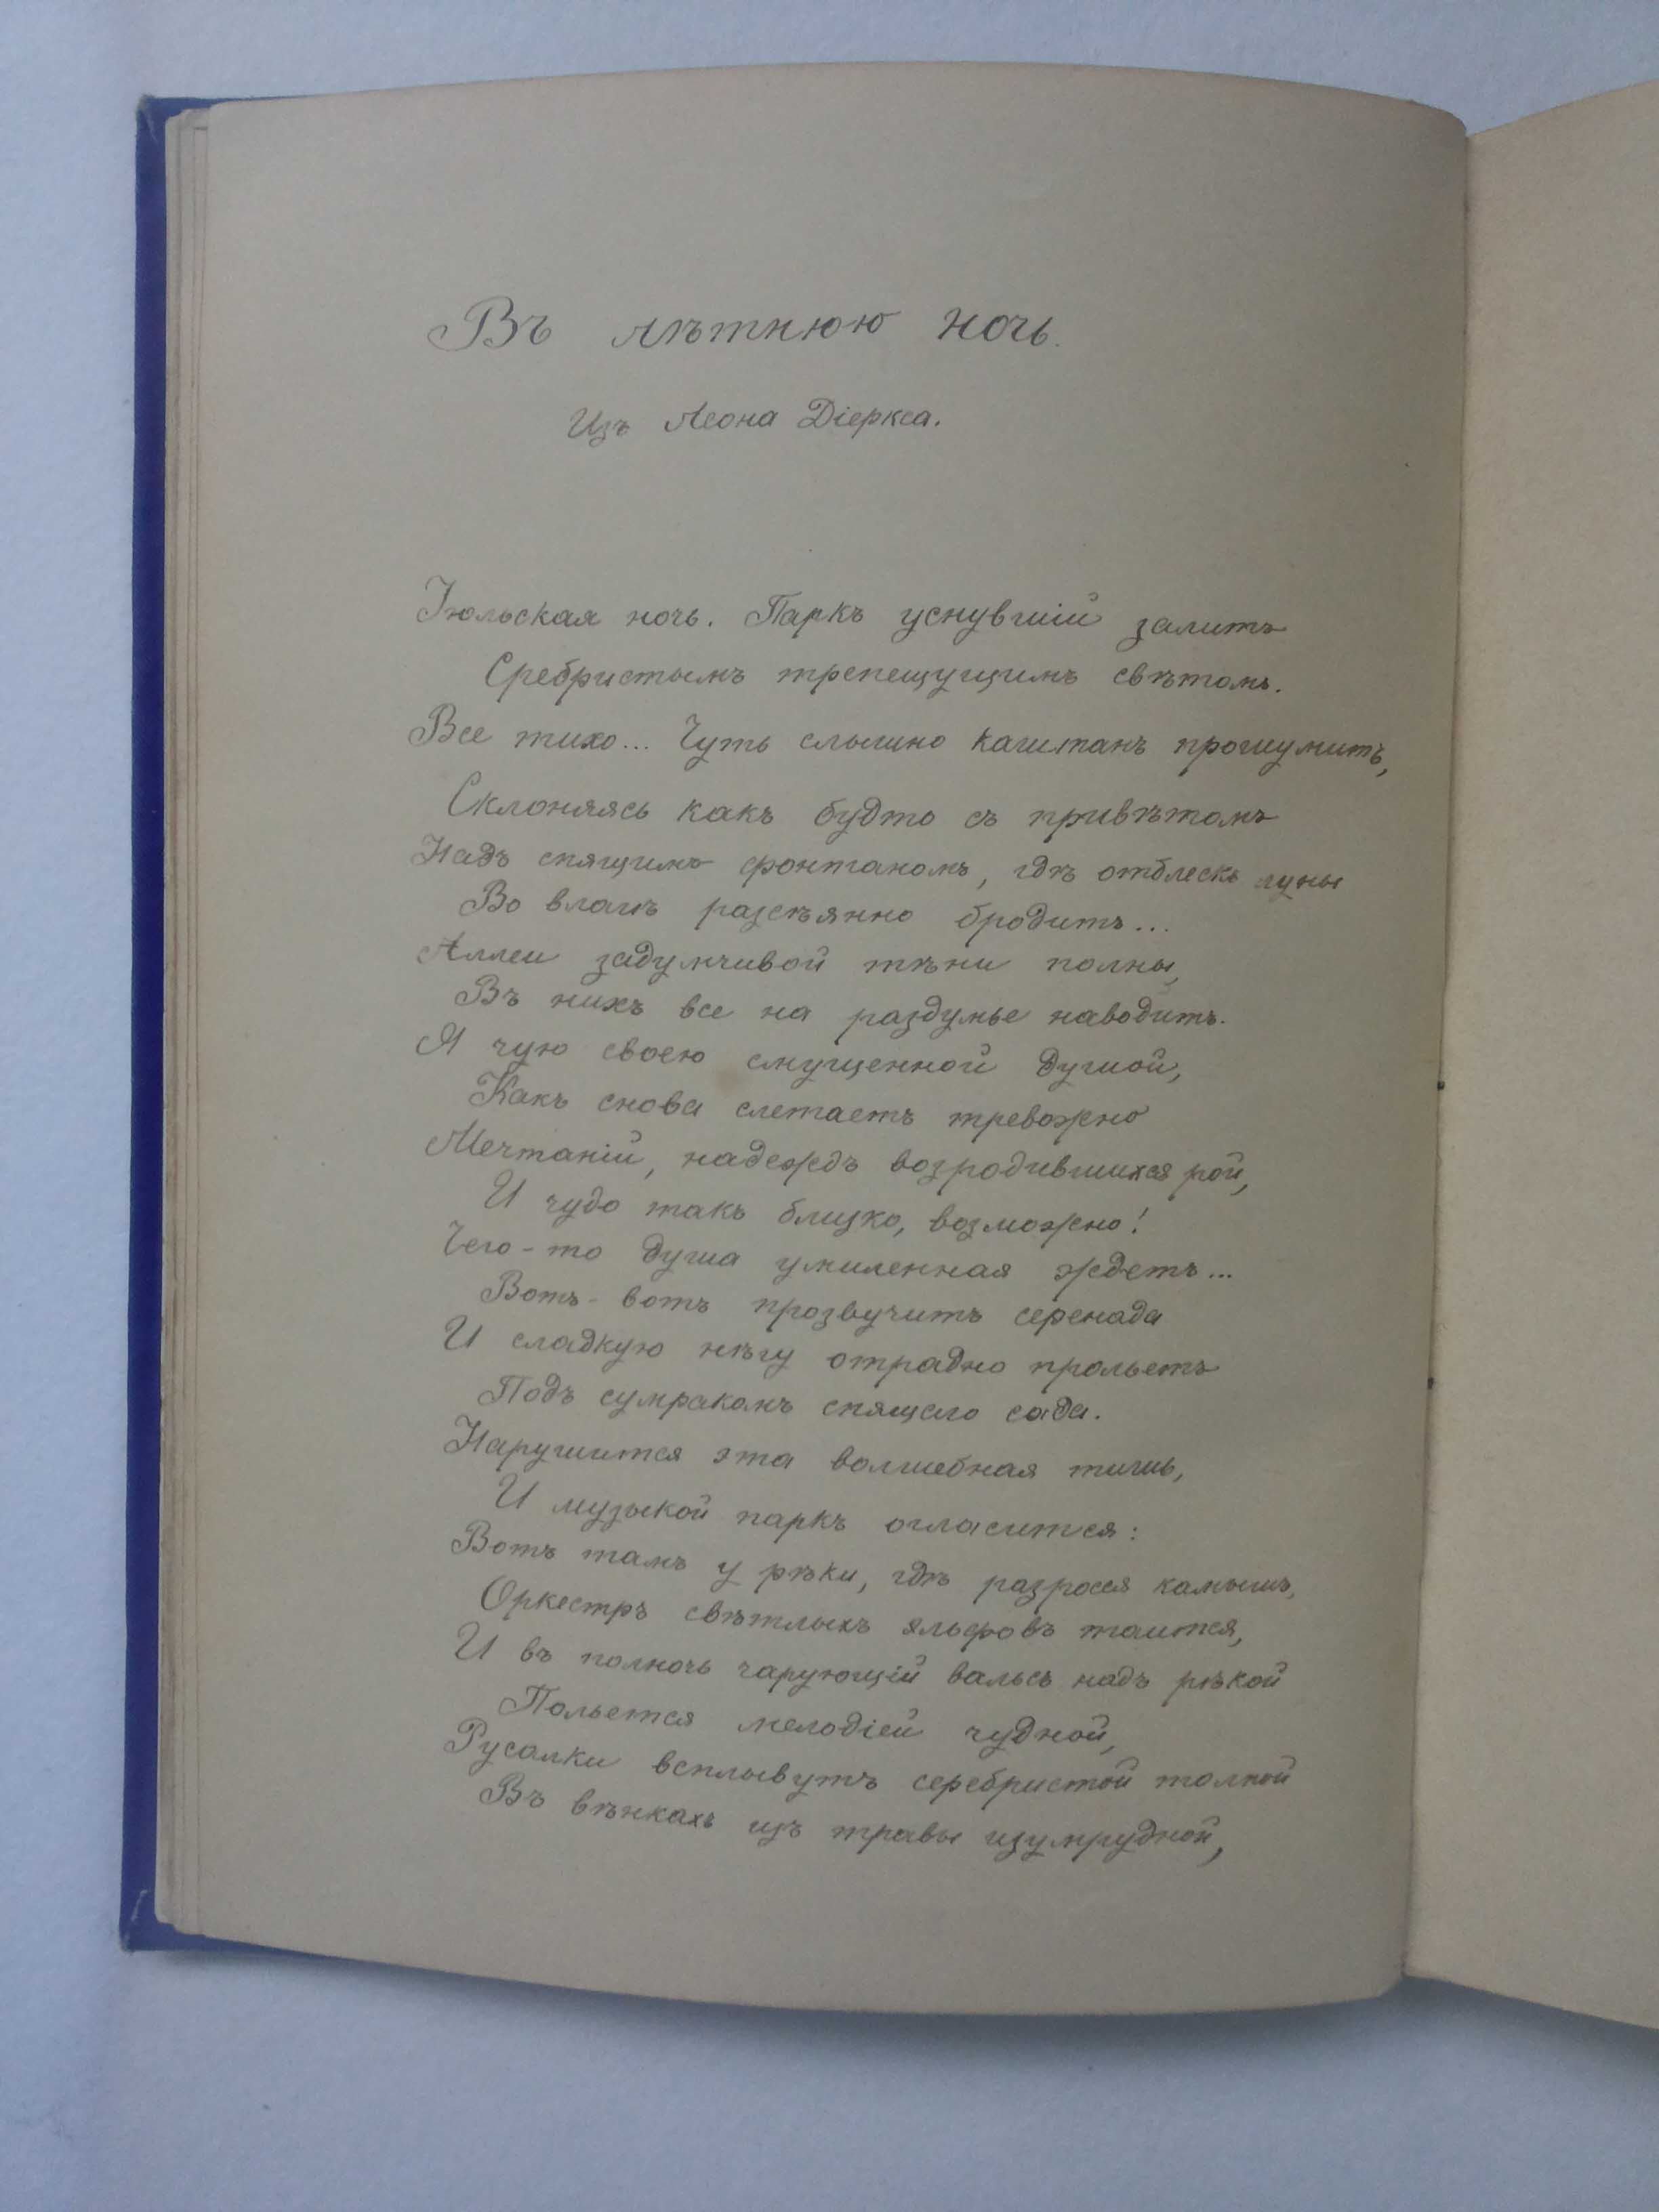 Въ лѣтнюю ночь.
Изъ Леона Діеркса.
Іюльская ночь. Паркъ уснувшій залитъ
Сребристымъ трепещущимъ свѣтомъ.
Все тихо... Чуть слышно каштанъ прошумитъ,
Склоняясь какъ будто съ привѣтомъ
Надъ спящимъ фонтаномъ, гдѣ отблескъ луны
Во влагѣ разсѣянно бродитъ...
Аллеи задумчивой тѣни полны,
Въ нихъ все на раздумье наводитъ.
Я чую своею смущенной душой,
Какъ снова слетаетъ тревожно
Мечтаній, надеждъ возродившихся рой,
И чудо такъ близко, возможно!
Чего-то душа умиленная ждетъ...
Вотъ-вотъ прозвучитъ серенада
И сладкую нѣгу отрадно прольетъ
Подъ сумракомъ спящаго сада.
Нарушится эта волшебная тишь,
И музыкой паркъ огласится:
Вотъ тамъ у рѣки, гдѣ разросся камышъ,
Оркестръ свѣтлыхъ эльфовъ таится,
И въ полночь чарующій вальсъ надъ рѣкой
Польется мелодіей чудной,
Русалки всплывутъ серебристой толпой
Въ вѣнкахъ изъ травы изумрудной,